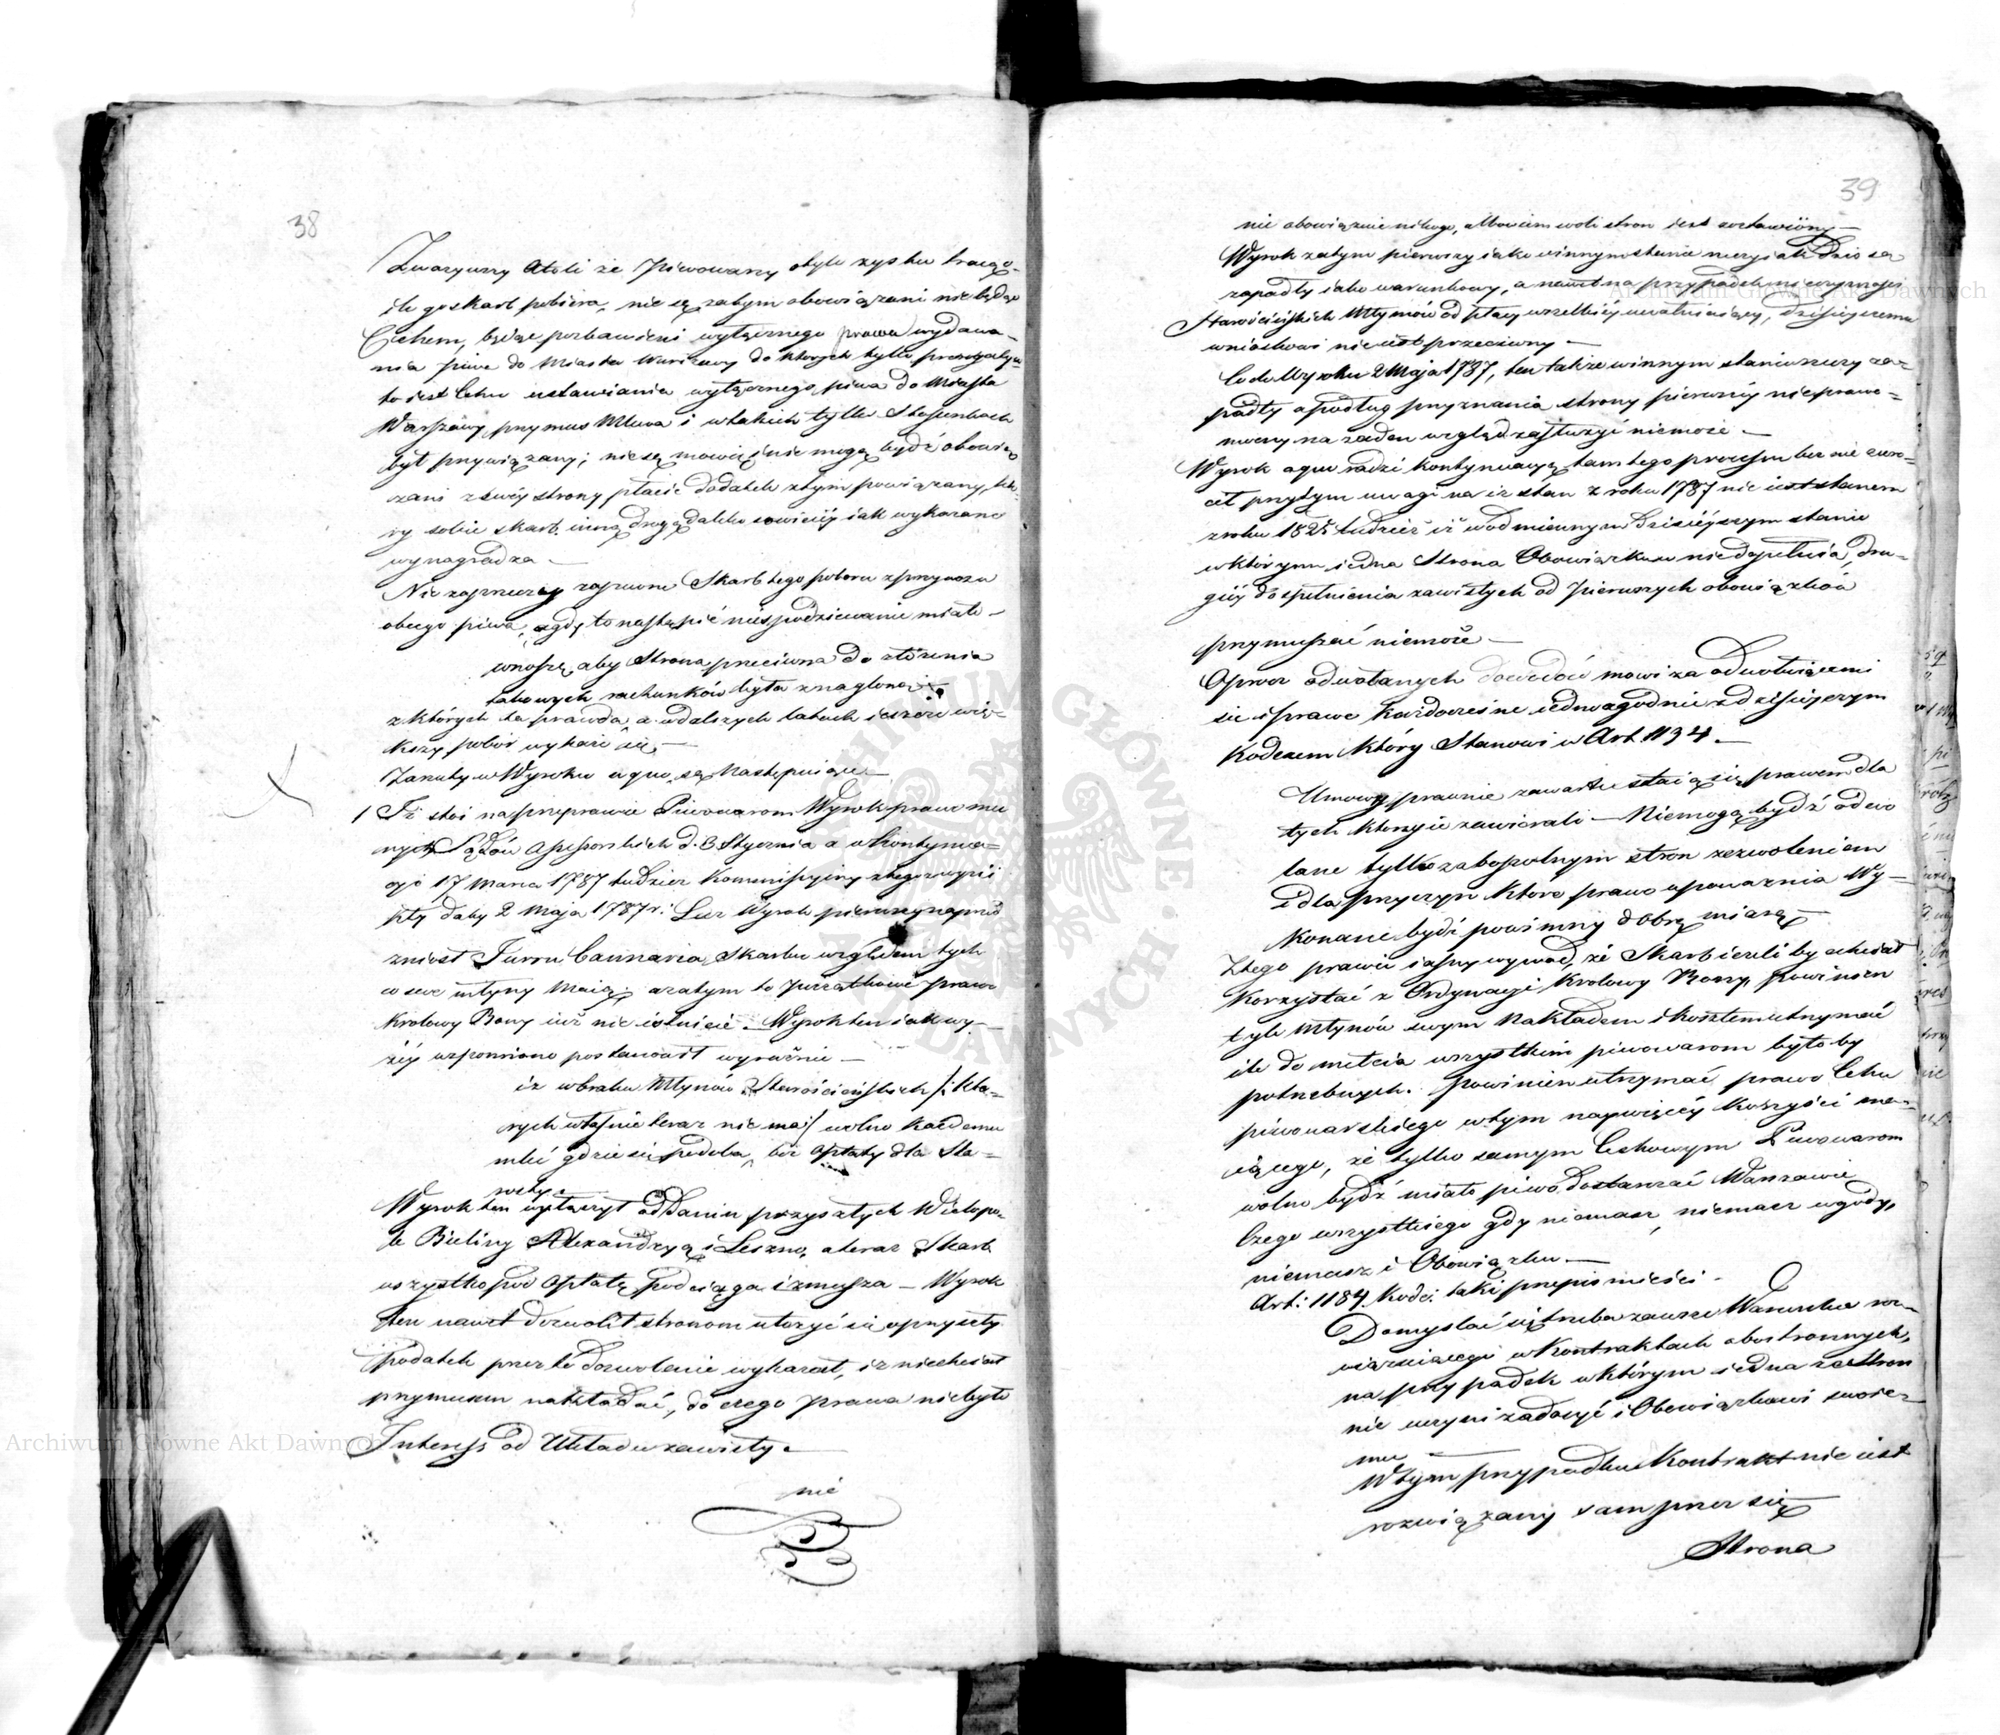 38
Zważywszy Atoli że Piwowarzy otyle zysku tracą
ile go skarb pobiera, nie są zatym obowiązani nie będąc
Cechem, będąc pozbawieni wyłącznego prawa wydawa-
nia piwa do Miasta Warszawy do których tylko
to iest Cechu ustawiania wyłącznego piwa do Miasta
Warszawy przymus Mliwa i w takich tylko Stosunkach
był przywiązany; nie są mowię i nie mogą bydź obowią
zani z swéy strony płacić dodatek z tym powiązany, któ-
ry sobie skarb inną drogą daleko sowiciéy iak wykazano
wynagradza —
Nie zaprzeczy zapewne Skarb tego poboru z przywozu
obcego piwa, a gdy to nastąpić niespodziewanie miało —
wnoszę aby Strona przeciwna do złożenia
takowych rachunków była znagloną
z których ta prawda a w dalszych latach ieszcze wię-
kszy pobór wykaże się —
Zarzuty w Wyroku a quo są Następuiące —
1 Iż stoi na przeprawie Piwowarom Wyrok prawomo
nych Sądów Assessorskich d. 3 Stycznia a w kontynua-
cyi 17 Marca 1787 tudzież Kommissyiny z tegoż wyni
kły daty 2 Maja 1787 r. Lecz Wyrok pierwszy naprzód
zniosł Jurra Cannaria Skarbu względem tych
co swe młyny Maią; a zatym to początkowe prawo
Krolowy Bony iuż nie istnieie. Wyrok ten iak wy-
żéy wspomniano postanowił wyraźnie —
iż w braku Młynów Starościńskich /: Któ-
rych właśnie teraz nie ma :/ wolno każdemu
mleć gdzie się podoba, bez Opłaty dla Sta-
rosty.
Wyrok ten wyłączył od Danin przyszłych Wielopo-
le Bieliny Alexandryą i Leszno, a teraz Skarb
wszystko pod Opłatę podciąga i zmusza — Wyrok
ten nawet dozwolił stronom ułożyć się o przyszły
Podatek przez to dozwolenie wykazał, iż niechciał
przymusem nakładać, do czego prawa niebyło
Interess od Układu zawisły. —
nie
39
nie obowiązuie nikogo, albowiem woli stron iest zostawiony —
Wyrok zatym pierwszy iako w innym stanie rzeczy iak Dziś są
zapadły iako warunkowy, a nawet na przypadek niewzniesieni
Starościńskich Młynów od płacy wszelkiéy uwalniaiący, dzisiejszemu
wnioskowi nie iest przeciwny —
Co do Wyroku 2 Maja 1787, ten także w innym stanie rzeczy za-
padły a podług przyznania strony pierwszéy nieprawo-
mocny na żaden wzgląd zasłużyć niemoże —
Wyrok a quo radzi kontynuacyą tamtego processu lecz nie zwró-
cił przytym uwagi na iż stan z roku 1787 nie iest stanem
z roku 1825 tudzież iż w odmiennym dzisiéyszym stanie
w którym iedna Strona Obowiązku nie dopełnia, dru-
giéy do spełnienia zawisłych od Pierwszych obowiązków
przymuszać niemoże —
Oprocz odwołanych dowodów mowi za odwołuiącemi
się i prawo każdocześne iednozgodnie z dzisiéyszym
Kodexem Który Stanowi w Art. 1134 —
Umowy prawnie zawarte staią się prawem dla
tych którzy ie zawierali — Niemogą bydź odwo
łane tylko za bopolnym stron zezwoleniem
i dla przyczyn które prawo upoważnia Wy-
konane bydź powinny dobrą wiarą —
Z tego prawie iasny wywód, że Skarb ieżeli by chciał
Korzystać z Ordynacyi Krolowy Bony, powinien
tyle Młynów swym Nakładem i kosztem utrzymać
ile do mełcia wszystkim piwowarom byłoby
potrzebnych. powinien utrzymać prawo Cechu
piwowarskiego w tym naywięcéy Korzyści ma-
iącego, że tylko samym Cechowym Piwowarom
wolno bydź miało piwo dostarczać Warszawie
Czego wszystkiego gdy niemasz, niemasz ugody,
niemasz i Obowiązku. —
Art: 1184 Kode: taki przepis mieści —
Domyślać się trzeba zawsze Warunku roz-
wiązuiącego w Kontraktach obostronnych,
na przypadek w którym iedna ze Stron
nie uczyni zadosyć Obowiązkowi swoie-
mu —
W tym przypadku Kontrakt nie iest
rozwiązany sam przez się
Strona
Archiwum Główne Akt Dawnych
Archiwum Główne Akt Dawnych
ARCHIWUM GŁÓWNE AKT DAWNYCH